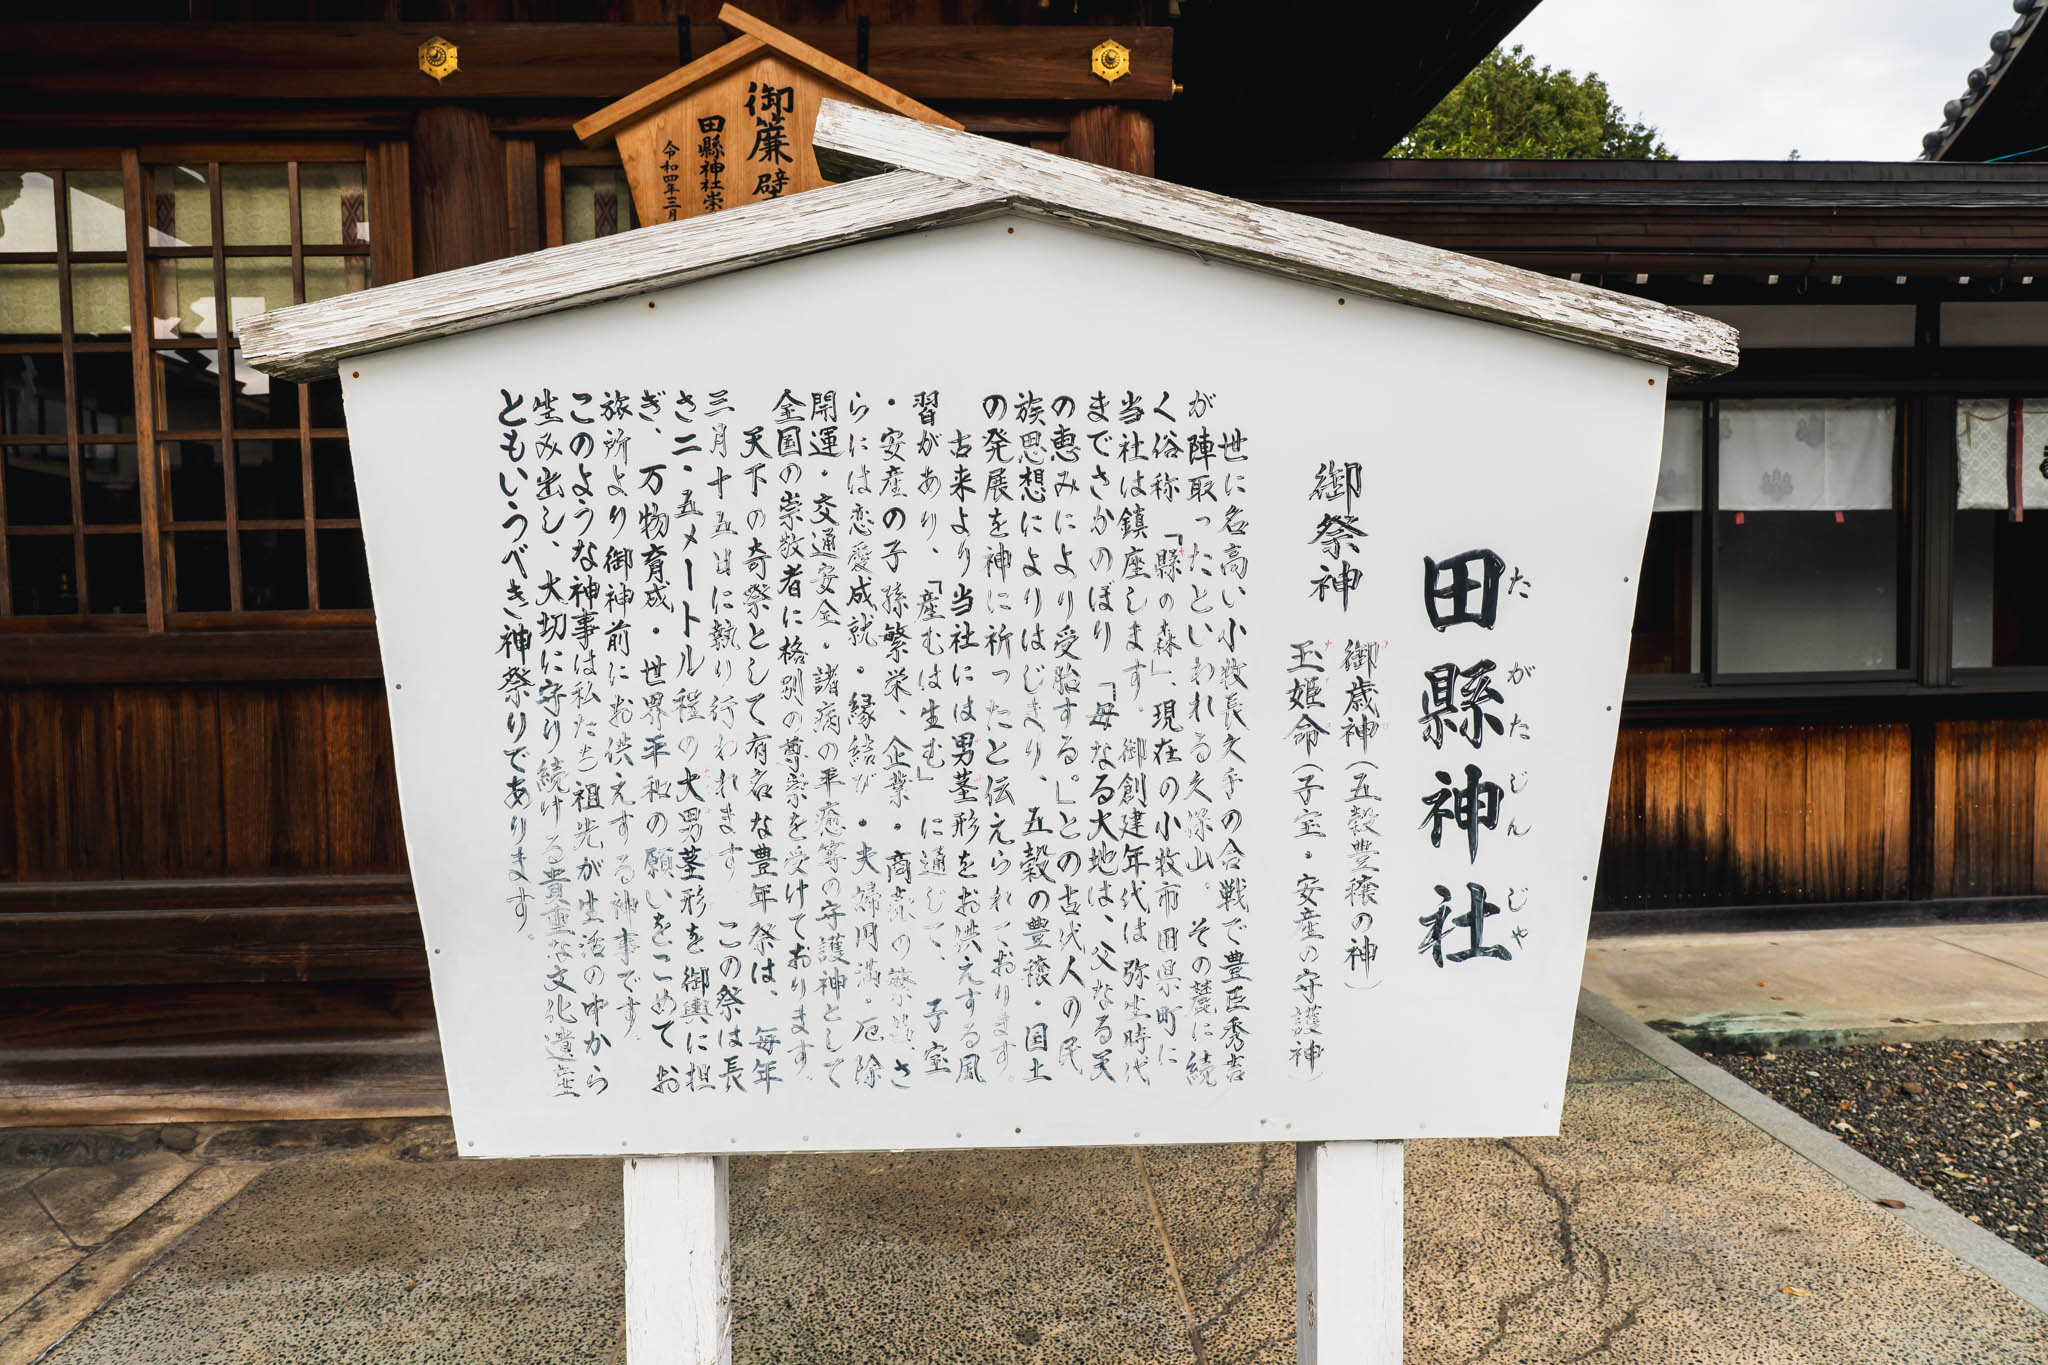 田縣神社
たがたじんじゃ
御祭神
御歳神(五穀豊穣の神)
玉姫命(子宝・安産の守護神)
世に名高い小牧長久手の合戦で豊臣秀吉
が陣取ったといわれる久保山。その麓に続
く俗称「縣の森」、現在の小牧市田県町に
当社は鎮座します。御創建年代は弥生時代
までさかのぼり「母なる大地は、父なる天
の恵みにより受胎する。」との古代人の民
族思想によりはじまり、五穀の豊穣・国土
の発展を神に祈ったと伝えられております。
古来より当社には男茎形をお供えする風
習があり、「産むは生む」に通じて、子宝
・安産の子孫繁栄、企業・商売の繁盛、さ
らには恋愛成就・縁結び・夫婦円満・厄除
開運・交通安全・諸病の平癒等の守護神として
全国の崇敬者に格別の尊崇を受けております。
天下の奇祭として有名な豊年祭は、毎年
三月十五日に執り行われます。この祭は長
さ二・五メートル程の大男茎形を御輿に担
ぎ、万物育成・世界平和の願いをこめてお
旅所より御神前にお供えする神事です。
このような神事は私たち祖先が生活の中から
生み出し、大切に守り続ける貴重な文化遺産
ともいうべき神祭りであります。
御簾
田縣神社崇
令和四年三月